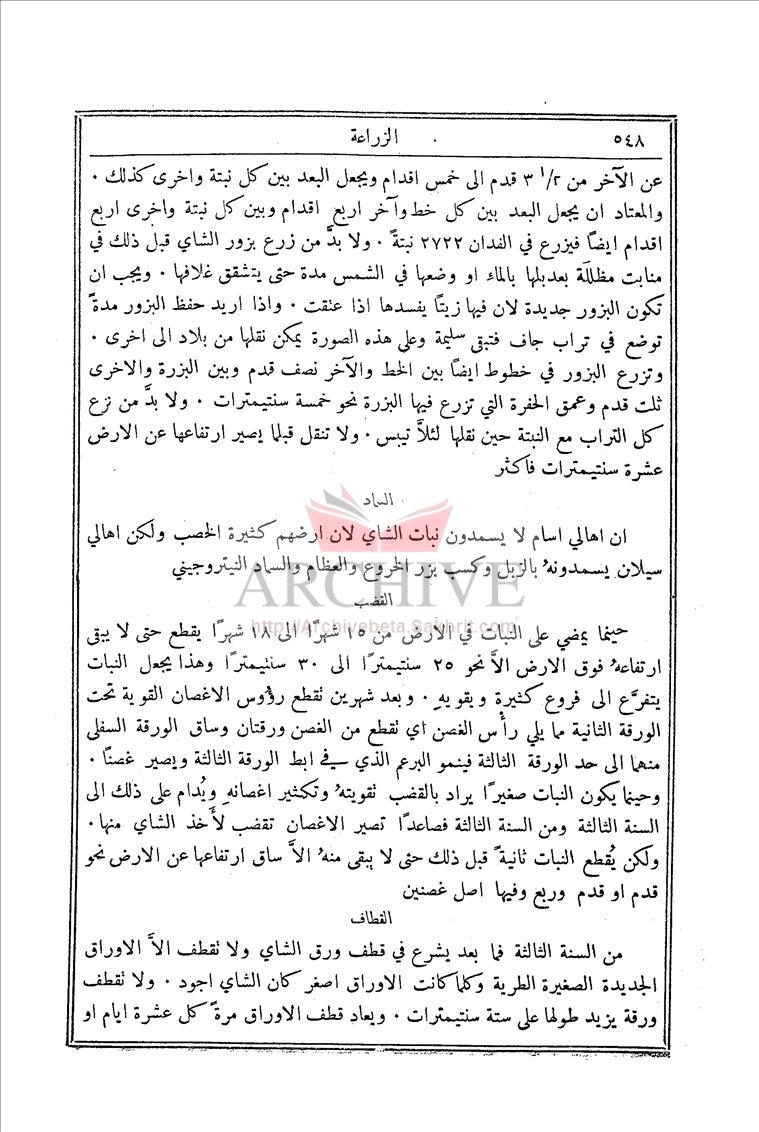 ٥٤٨ الزراعة
عن الآخر من ١/٢ ٣ قدم الى خمس اقدام ويجعل البعد بين كل نبتة واخرى كذلك ٠
والمعتاد ان يجعل البعد بين كل خط وآخر اربع اقدام وبين كل نبتة واخرى اربع
اقدام ايضًا فيزرع في الفدان ٢٧٢٢ نبتةً ٠ ولا بدَّ من زرع بزور الشاي قبل ذلك في
منابت مظلَّلة بعد بلها بالماء او وضعها في الشمس مدة حتى يتشقق غلافها ٠ ويجب ان
تكون البزور جديدة لان فيها زيتًا يفسدها اذا عتقت ٠ واذا اريد حفظ البزور مدةً
توضع في تراب جاف فتبقى سليمة وعلى هذه الصورة يمكن نقلها من بلاد الى اخرى ٠
وتزرع البزور في خطوط ايضًا بين الخط والآخر نصف قدم وبين البزرة والاخرى
ثلت قدم وعمق الحفرة التي تزرع فيها البزرة نحو خمسة سنتيمترات ٠ ولا بدَّ من نزع
كل التراب مع النبتة حين نقلها لئلاَّ تيبس ٠ ولا تنقل قبلما يصير ارتفاعها عن الارض
عشرة سنتيمترات فاكثر
السماد
ان اهالي اسام لا يسمدون نبات الشاي لان ارضهم كثيرة الخصب ولكن اهالي
سيلان يسمدونهُ بالزبل وكسب بزر الخروع والعظام والسماد النيتروجيني
ARCHIVE
القضب
http://Archivebeta.Sakhrit.com
حينما يمضي على النبات في الارض من ١٥ شهرًا الى ١٨ شهرًا يقطع حتى لا يبقى
ارتفاعهُ فوق الارض الاَّ نحو ٢٥ سنتيمترًا الى ٣٠ سنتيمترًا وهذا يجعل النبات
يتفرَّع الى فروع كثيرة ويقويهِ ٠ وبعد شهرين نقطع رؤوس الاغصان القوية تحت
الورقة الثانية مما يلي رأس الغصن اي نقطع من الغصن ورقتان وساق الورقة السفلى
منهما الى حد الورقة الثالثة فينمو البرعم الذي في ابط الورقة الثالثة ويصير غصنًا ٠
وحينما يكون النبات صغيرًا يراد بالقضب تقويتهُ وتكثير اغصانهِ ويُدام على ذلك الى
السنة الثالثة ومن السنة الثالثة فصاعدًا تصير الاغصان تقضب لأخذ الشاي منها ٠
ولكن يُقطع النبات ثانيةً قبل ذلك حتى لا يبقى منهُ الاَّ ساق ارتفاعها عن الارض نحو
قدم او قدم وربع وفيها اصل غصنين
القطاف
من السنة الثالثة فما بعد يشرع في قطف ورق الشاي ولا نقطف الاَّ الاوراق
الجديدة الصغيرة الطرية وكلما كانت الاوراق اصغر كان الشاي اجود ٠ ولا نقطف
ورقة يزيد طولها على ستة سنتيمترات ٠ ويعاد قطف الاوراق مرةً كل عشرة ايام او